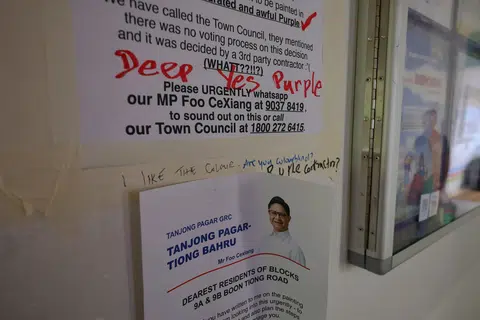 to be painted in
rated and awful Purple
We have called the Town Council, they mentioned
there was no voting process on this decision
and it was decided by a 3rd party contractor :'(
(WHATT??!!?)
Deep Yes Purple
Please URGENTLY whatsapp
our MP Foo CeXiang at 9037 8419
to sound out on this or call
our Town Council at 1800 272 6415.
I LIKE THE COLOUR. Are you colourblind?
PLE contractor?
TANJONG PAGAR GRC
TANJONG PAGAR-
TIONG BAHRU
Mr Foo Cexiang
DEAREST RESIDENTS OF BLOCKS
9A & 9B BOON TIONG ROAD
you have written to me on the painting
looking into this urgently - to
and also plan the steps